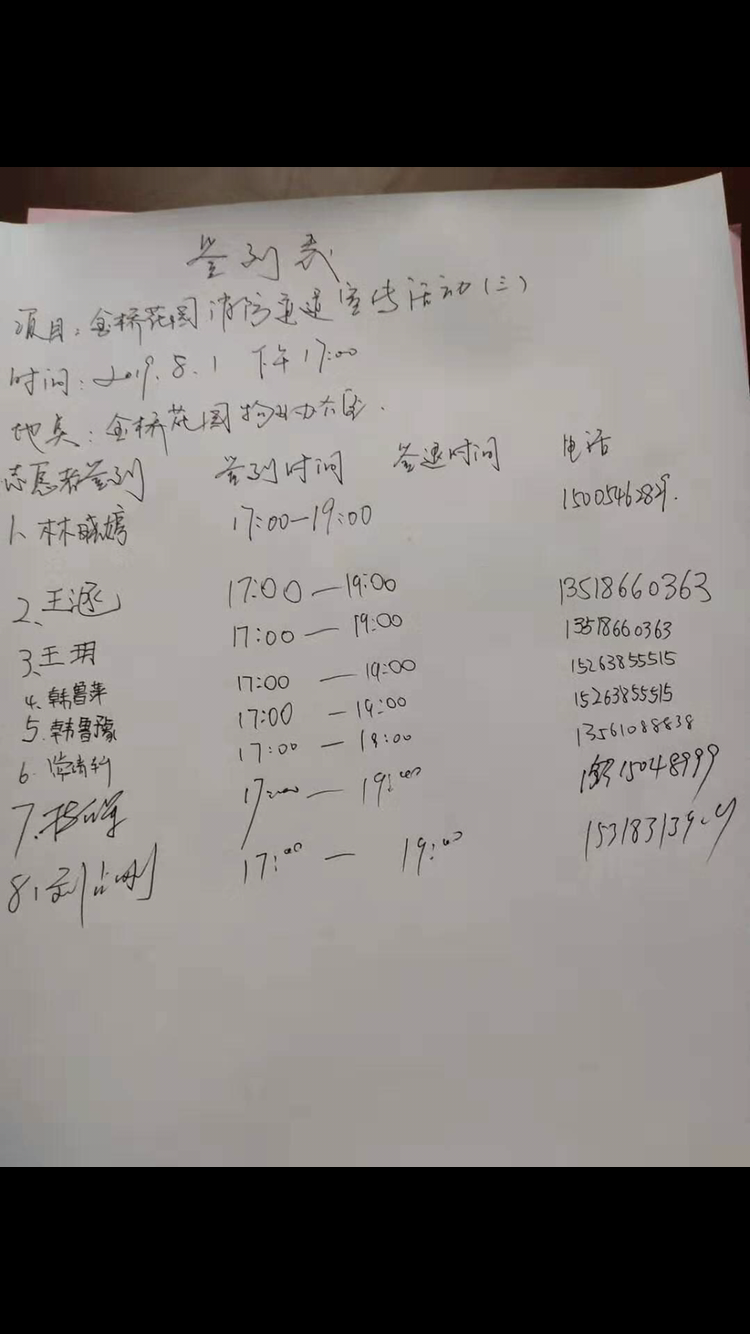 签到表
项目：金桥花园消防通道宣传活动（三）
时间：2019.8.1 下午17:00
地点：金桥花园物业办公室.
志愿者签到 签到时间 签退时间 电话
1、林晓嫦 17:00—19:00 15005462829.
2、王逐 17:00—19:00 13518660363
3、王玥 17:00—19:00 13518660363
4、韩鲁萍 17:00—19:00 15263855515
5、韩鲁豫 17:00—19:00 15263855515
6. 17:00—19:00 13561088838
7. 17:00—19:00 15048999
8、刘占刚 17:00—19:00